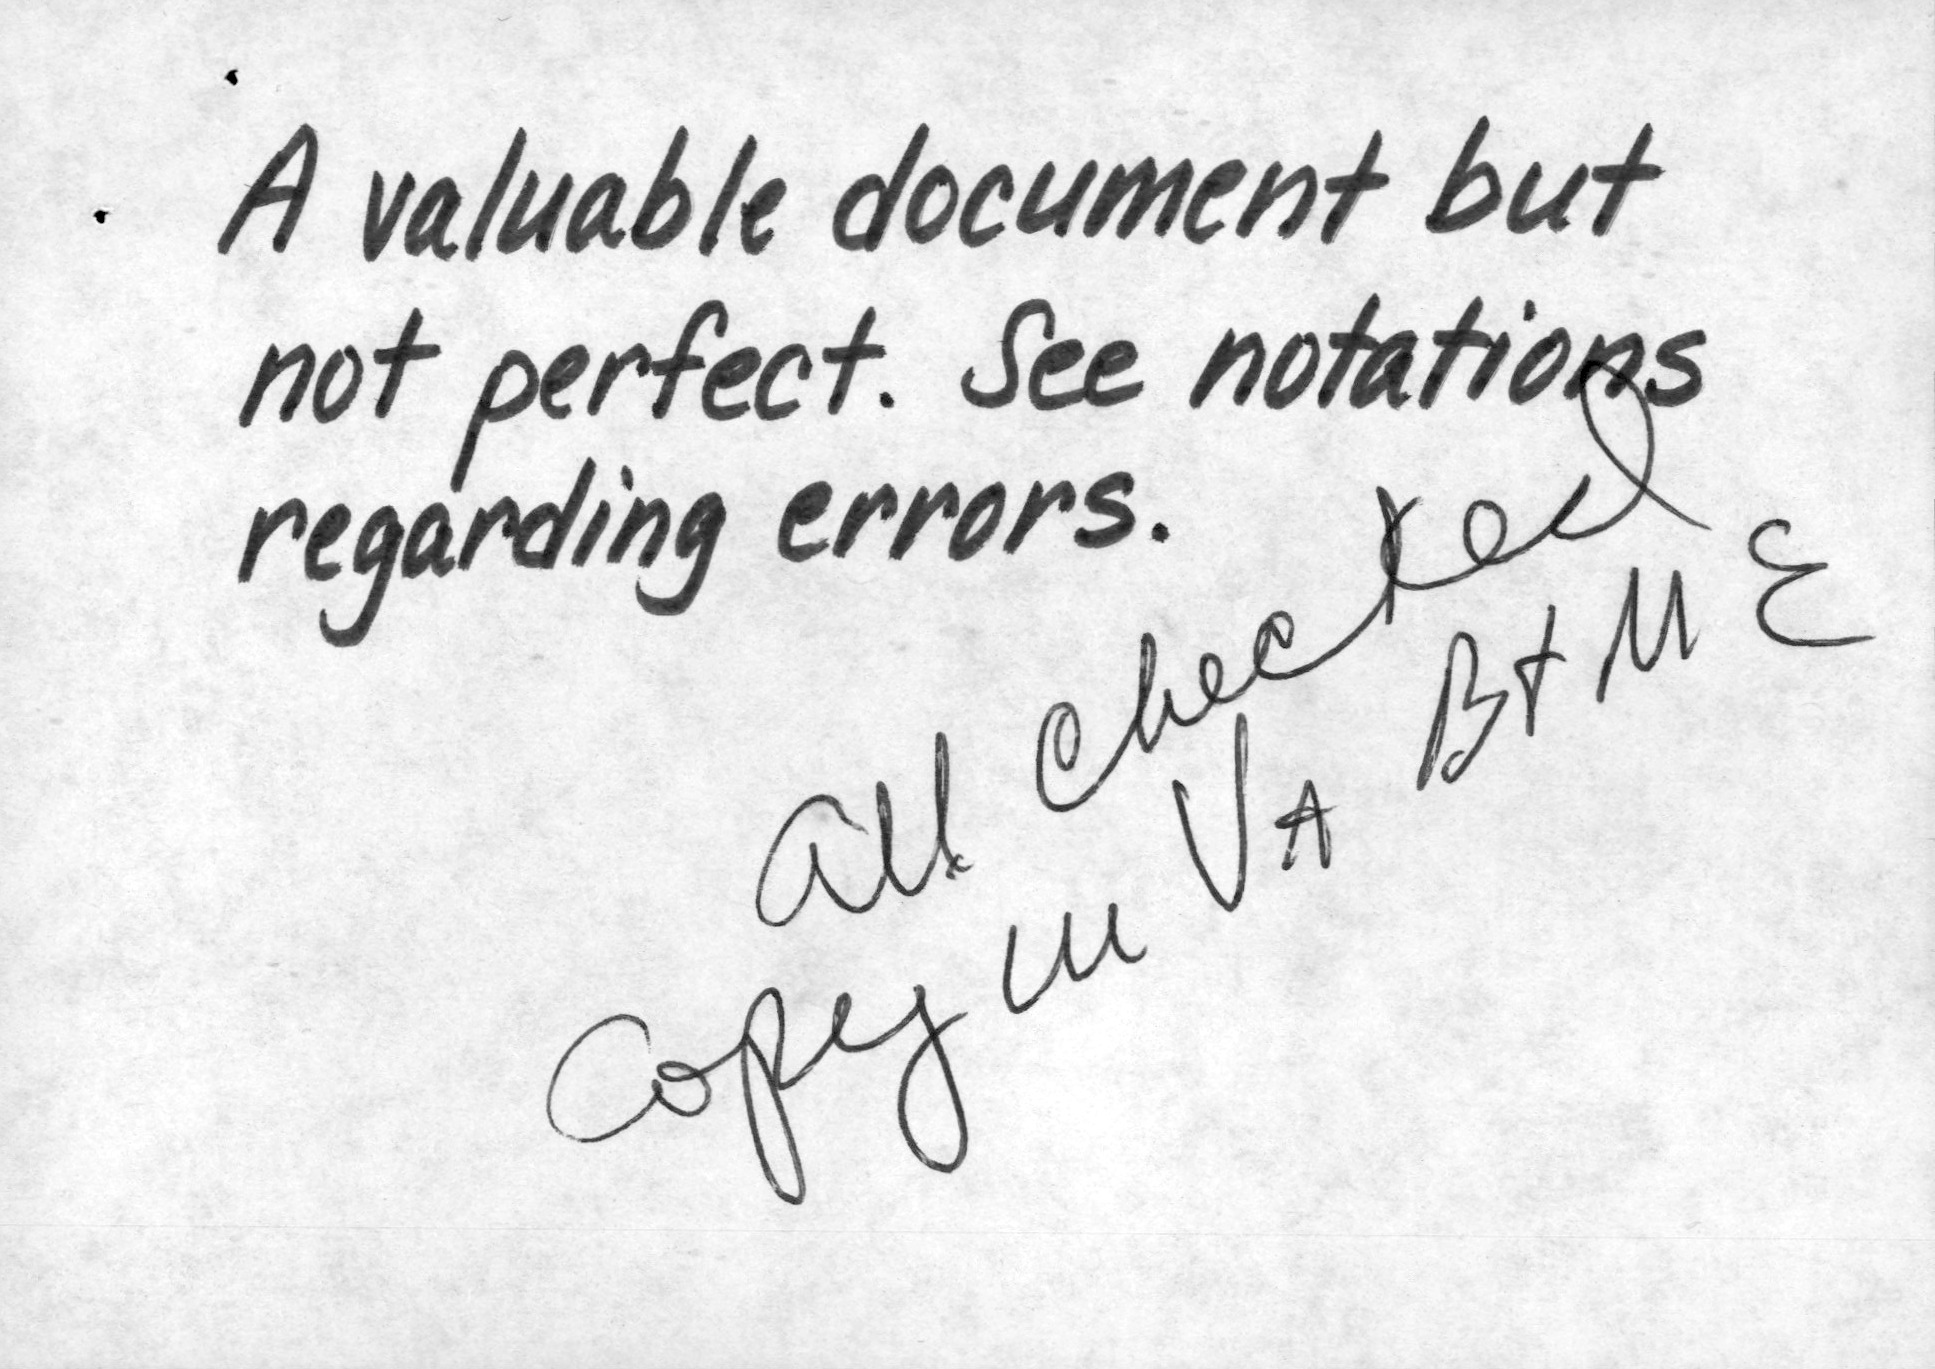 A valuable document but
not perfect. See notations
regarding errors.
All checked
Copy in VA B+M E